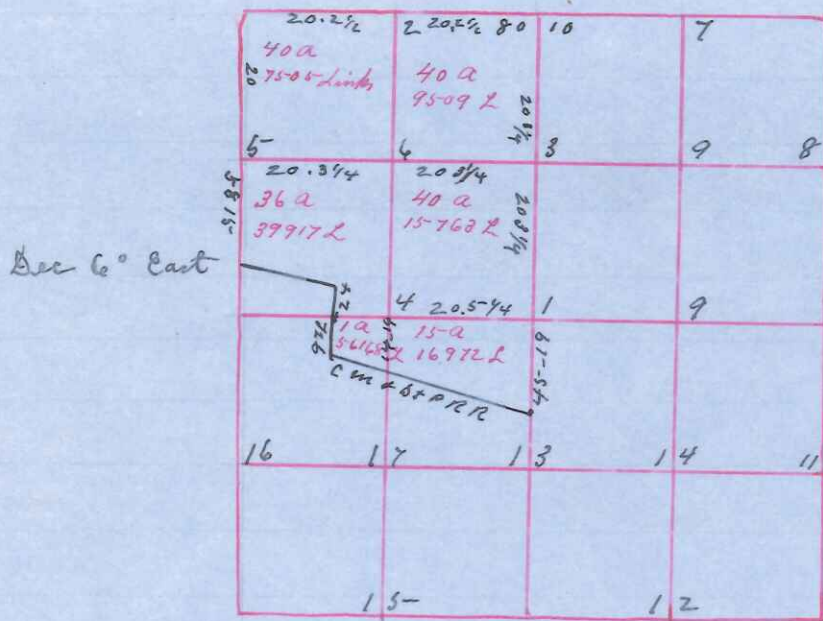 20.2½ 2 20.2½ 80 10 7
40 a
7505 Links
20
40 a
9509 L
20 ¼
5 6 3 9 8
20.3¼ 20 3¼
5815
36 a
39917 L
40 a
15763 L
203¼
Dec 6° East
42
4 20.5¼ 1 9
926
1 a
56168 L
15 a
16972 L
19
C M & St P R R
16 17 13 14 11
15 12